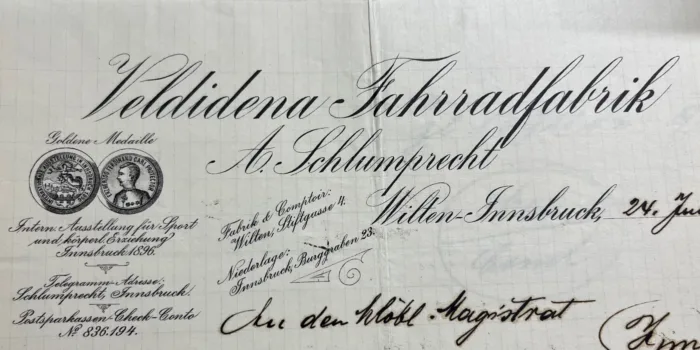 Veldidena Fahrradfabrik
A. Schlumprecht
Goldene Medaille
Intern. Ausstellung für Sport
und körperl. Erziehung
Innsbruck 1896.
Telegramm-Adresse:
Schlumprecht, Innsbruck.
Postsparkassen-Check-Conto
Nº 836.194.
Fabrik & Comptoir:
Wilten, Stiftgasse 4.
Niederlage:
Innsbruck, Burggraben 23.
Wilten-Innsbruck, 24.
An den löbl. Magistrat